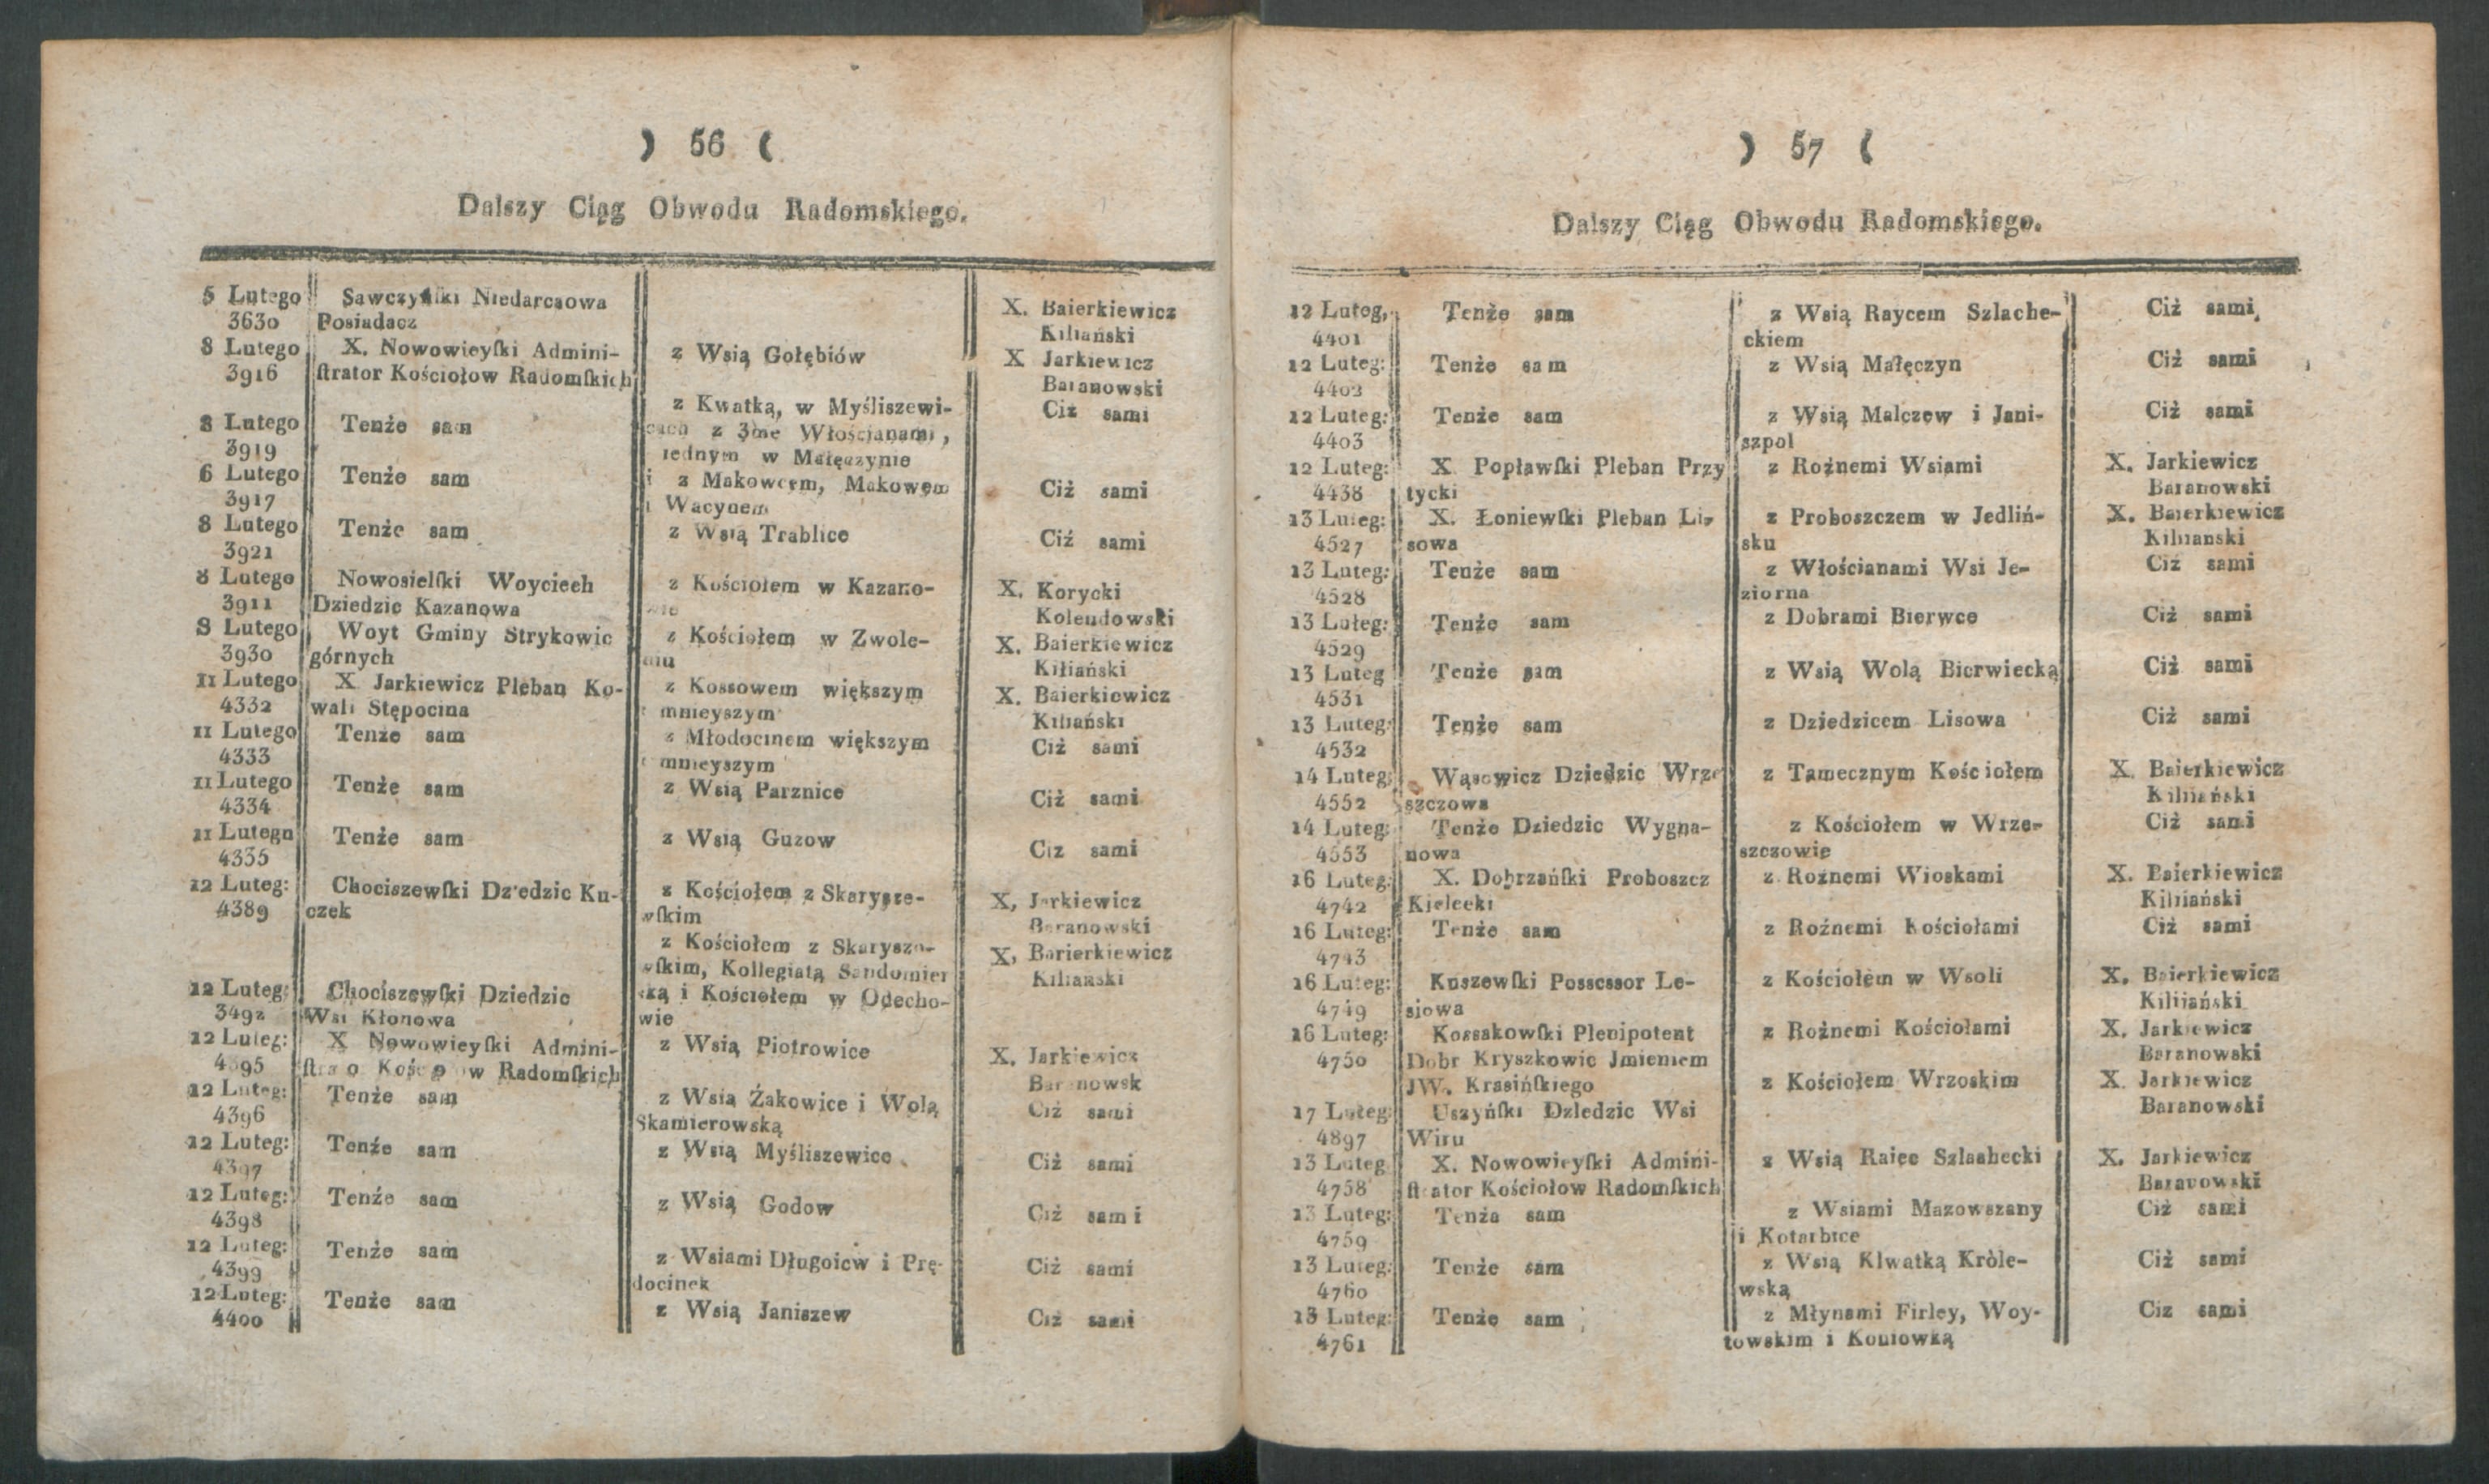 ) 56 (
Dalszy Ciąg Obwodu Radomskiego.
5 Lutego Sawczyńſki Niedarcsowa X. Baierkiewicz
3630 Posiadacz Kiliański
8 Lutego X. Nowowieyſki Admini- z Wsią Gołębiów X Jarkiewicz
3916 ſtrator Kościołow Radomſkich Baranowski
8 Lutego Tenże sam z Kwatką, w Myśliszewi- Ciż sami
3919 cach z 3me Włościanami,
iednym w Małęczynie
6 Lutego Tenże sam i z Makowcem, Makowem Ciż sami
3917 i Wacynem
8 Lutego Tenże sam z Wsią Trablice Ciż sami
3921
8 Lutego Nowosielſki Woyciech z Kościołem w Kazano- X. Korycki
3911 Dziedzic Kazanowa wie Kolendowski
8 Lutego Woyt Gminy Strykowic z Kościołem w Zwole- X. Baierkiewicz
3930 górnych niu Kiliański
11 Lutego X Jarkiewicz Pleban Ko- z Kossowem większym X. Baierkiewicz
4332 wali Stępocina mnieyszym Kiliański
11 Lutego Tenże sam z Młodocinem większym Ciż sami
4333 mnieyszym
11 Lutego Tenże sam z Wsią Parznice Ciż sami
4334
11 Lutegn Tenże sam z Wsią Guzow Ciz sami
4335
12 Luteg: Chociszewſki Dziedzic Ku- z Kościołem z Skarysze- X, Jarkiewicz
4389 czek wſkim Baranowski
z Kościołem z Skarysze- X, Barierkiewicz
wſkim, Kollegiatą Sandomier Kiliański
12 Luteg: Chociszewſki Dziedzic ską i Kościołem w Odecho-
3492 Wsi Kłonowa wie
12 Luteg: X Nowowieyſki Admini- z Wsią Piotrowice X. Jarkiewicz
4395 Radomſkich Baranowsk
12 Luteg: Tenże sam z Wsia Żakowice i Wolą Ciż sami
4396 Skamierowską
12 Luteg: Tenże sam z Wsią Myśliszewice Ciż sami
4397
12 Luteg: Tenże sam z Wsią Godow Ciż sami
4398
12 Luteg: Tenże sam z Wsiami Długoiow i Prę- Ciż sami
4399 docinek
12 Luteg: Tenże sam z Wsią Janiszew Ciż sami
4400
) 57 (
Dalszy Ciąg Obwodu Radomskiego.
12 Luteg, Tenże sam z Wsią Raycem Szlache- Ciż sami,
4401 ckiem
12 Luteg: Tenże sam z Wsią Małęczyn Ciż sami
4402
12 Luteg: Tenże sam z Wsią Malczew i Jani- Ciż sami
4403 szpol
12 Luteg: X Popławſki Pleban Przy z Rożnemi Wsiami X. Jarkiewicz
4438 tycki Baranowski
13 Luteg: X. Łoniewſki Pleban Li- z Proboszczem w Jedliń- X. Baierkiewicz
4527 sowa sku Kiliianski
13 Luteg: Tenże sam z Włościanami Wsi Je- Ciż sami
4528 ziorna
13 Luteg: Tenże sam z Dobrami Bierwce Ciż sami
4529
13 Luteg Tenże sam z Wsią Wolą Bierwiecką Ciż sami
4531
13 Luteg: Tenże sam z Dziedzicem Lisowa Ciż sami
4532
14 Luteg: Wąsowicz Dziedzic Wrze z Tamecznym Kościołem X. Baierkiewicz
4552 szczowa Kiliiański
14 Luteg: Tenże Dziedzic Wygna- z Kościołem w Wrze- Ciż sami
4553 nowa szczowie
16 Luteg: X. Dobrzańſki Proboszcz z Rożnemi Wioskami X. Baierkiewicz
4742 Kielecki Kiliiański
16 Luteg: Tenże sam z Rożnemi Kościołami Ciż sami
4743
16 Luteg: Kuszewſki Possessor Le- z Kościołem w Wsoli X. Baierkiewicz
4749 siowa Kiliiański
16 Luteg: Kossakowſki Plenipotent z Rożnemi Kościołami X. Jarkiewicz
4750 Dobr Kryszkowic Jmieniem Baranowski
JW. Krasińſkiego z Kościołem Wrzoskim X. Jarkiewicz
17 Luteg: Uszyńſki Dziedzic Wsi Baranowski
4897 Wiru
13 Luteg X. Nowowieyſki Admini- z Wsią Raiec Szlashecki X. Jarkiewicz
4758 ſtrator Kościołow Radomſkich Baranowski
13 Luteg: Tenża sam z Wsiami Mazowszany Ciż sami
4759 i Kotarbice
13 Luteg: Tenże sam z Wsią Klwatką Króle- Ciż sami
4760 wską
13 Luteg: Tenże sam z Młynami Firley, Woy- Ciz sami
4761 towskim i Koniowką